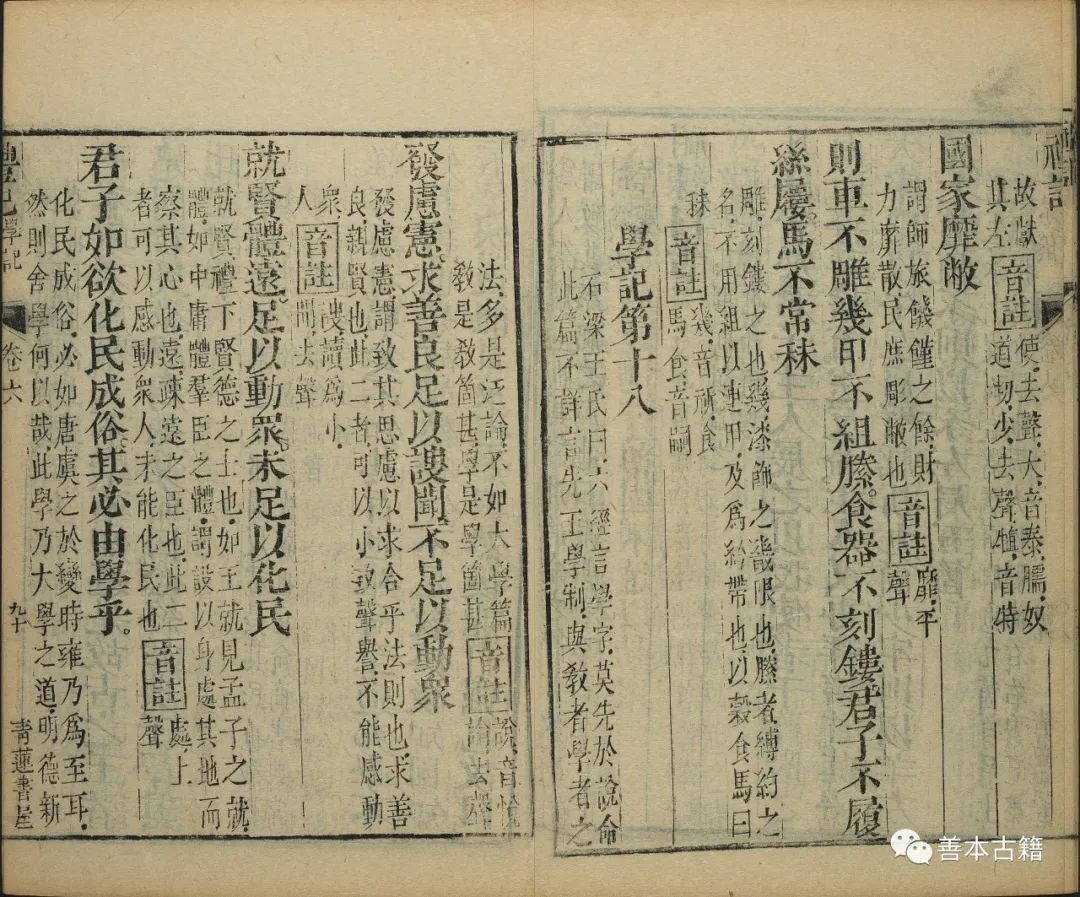 禮記
故獻
其左
音註
使去聲大音泰臑奴
道切少去聲犆音特
國家靡敝
謂師旅饑饉之餘財
力靡散民庶彫敝也
音註
靡平
聲
則車不雕幾甲不組縢食器不刻鏤君子不履
絲屨馬不常秣
雕刻鏤之也幾漆飾之畿限也縢者縛約之
名不用組以連甲及爲紟帶也以穀食馬曰
秣
音註
幾音祈食
馬食音嗣
學記第十八
石梁王氏曰六經言學字莫先於說命
此篇不詳言先王學制與教者學者之
法多是泛論不如大學篇
教是教箇甚學是學箇甚
音註
說音悅
論去聲
發慮憲求善良足以謏聞不足以動衆
發慮憲謂致其思慮以求合乎法則也求善
良親賢也此二者可以小致聲譽不能感動
衆
人
音註
謏讀爲小
聞去聲
就賢體遠足以動衆未足以化民
就賢禮下賢德之士也如王就見孟子之就
體如中庸體羣臣之體謂設以身處其地而
察其心也遠疎遠之臣也此二
者可以感動衆人未能化民也
音註
處上
聲
君子如欲化民成俗其必由學乎
化民成俗必如唐虞之於變時雍乃爲至耳
然則舍學何以哉此學乃大學之道明德新
禮記學記
卷六
九十
青蓮書屋
善本古籍